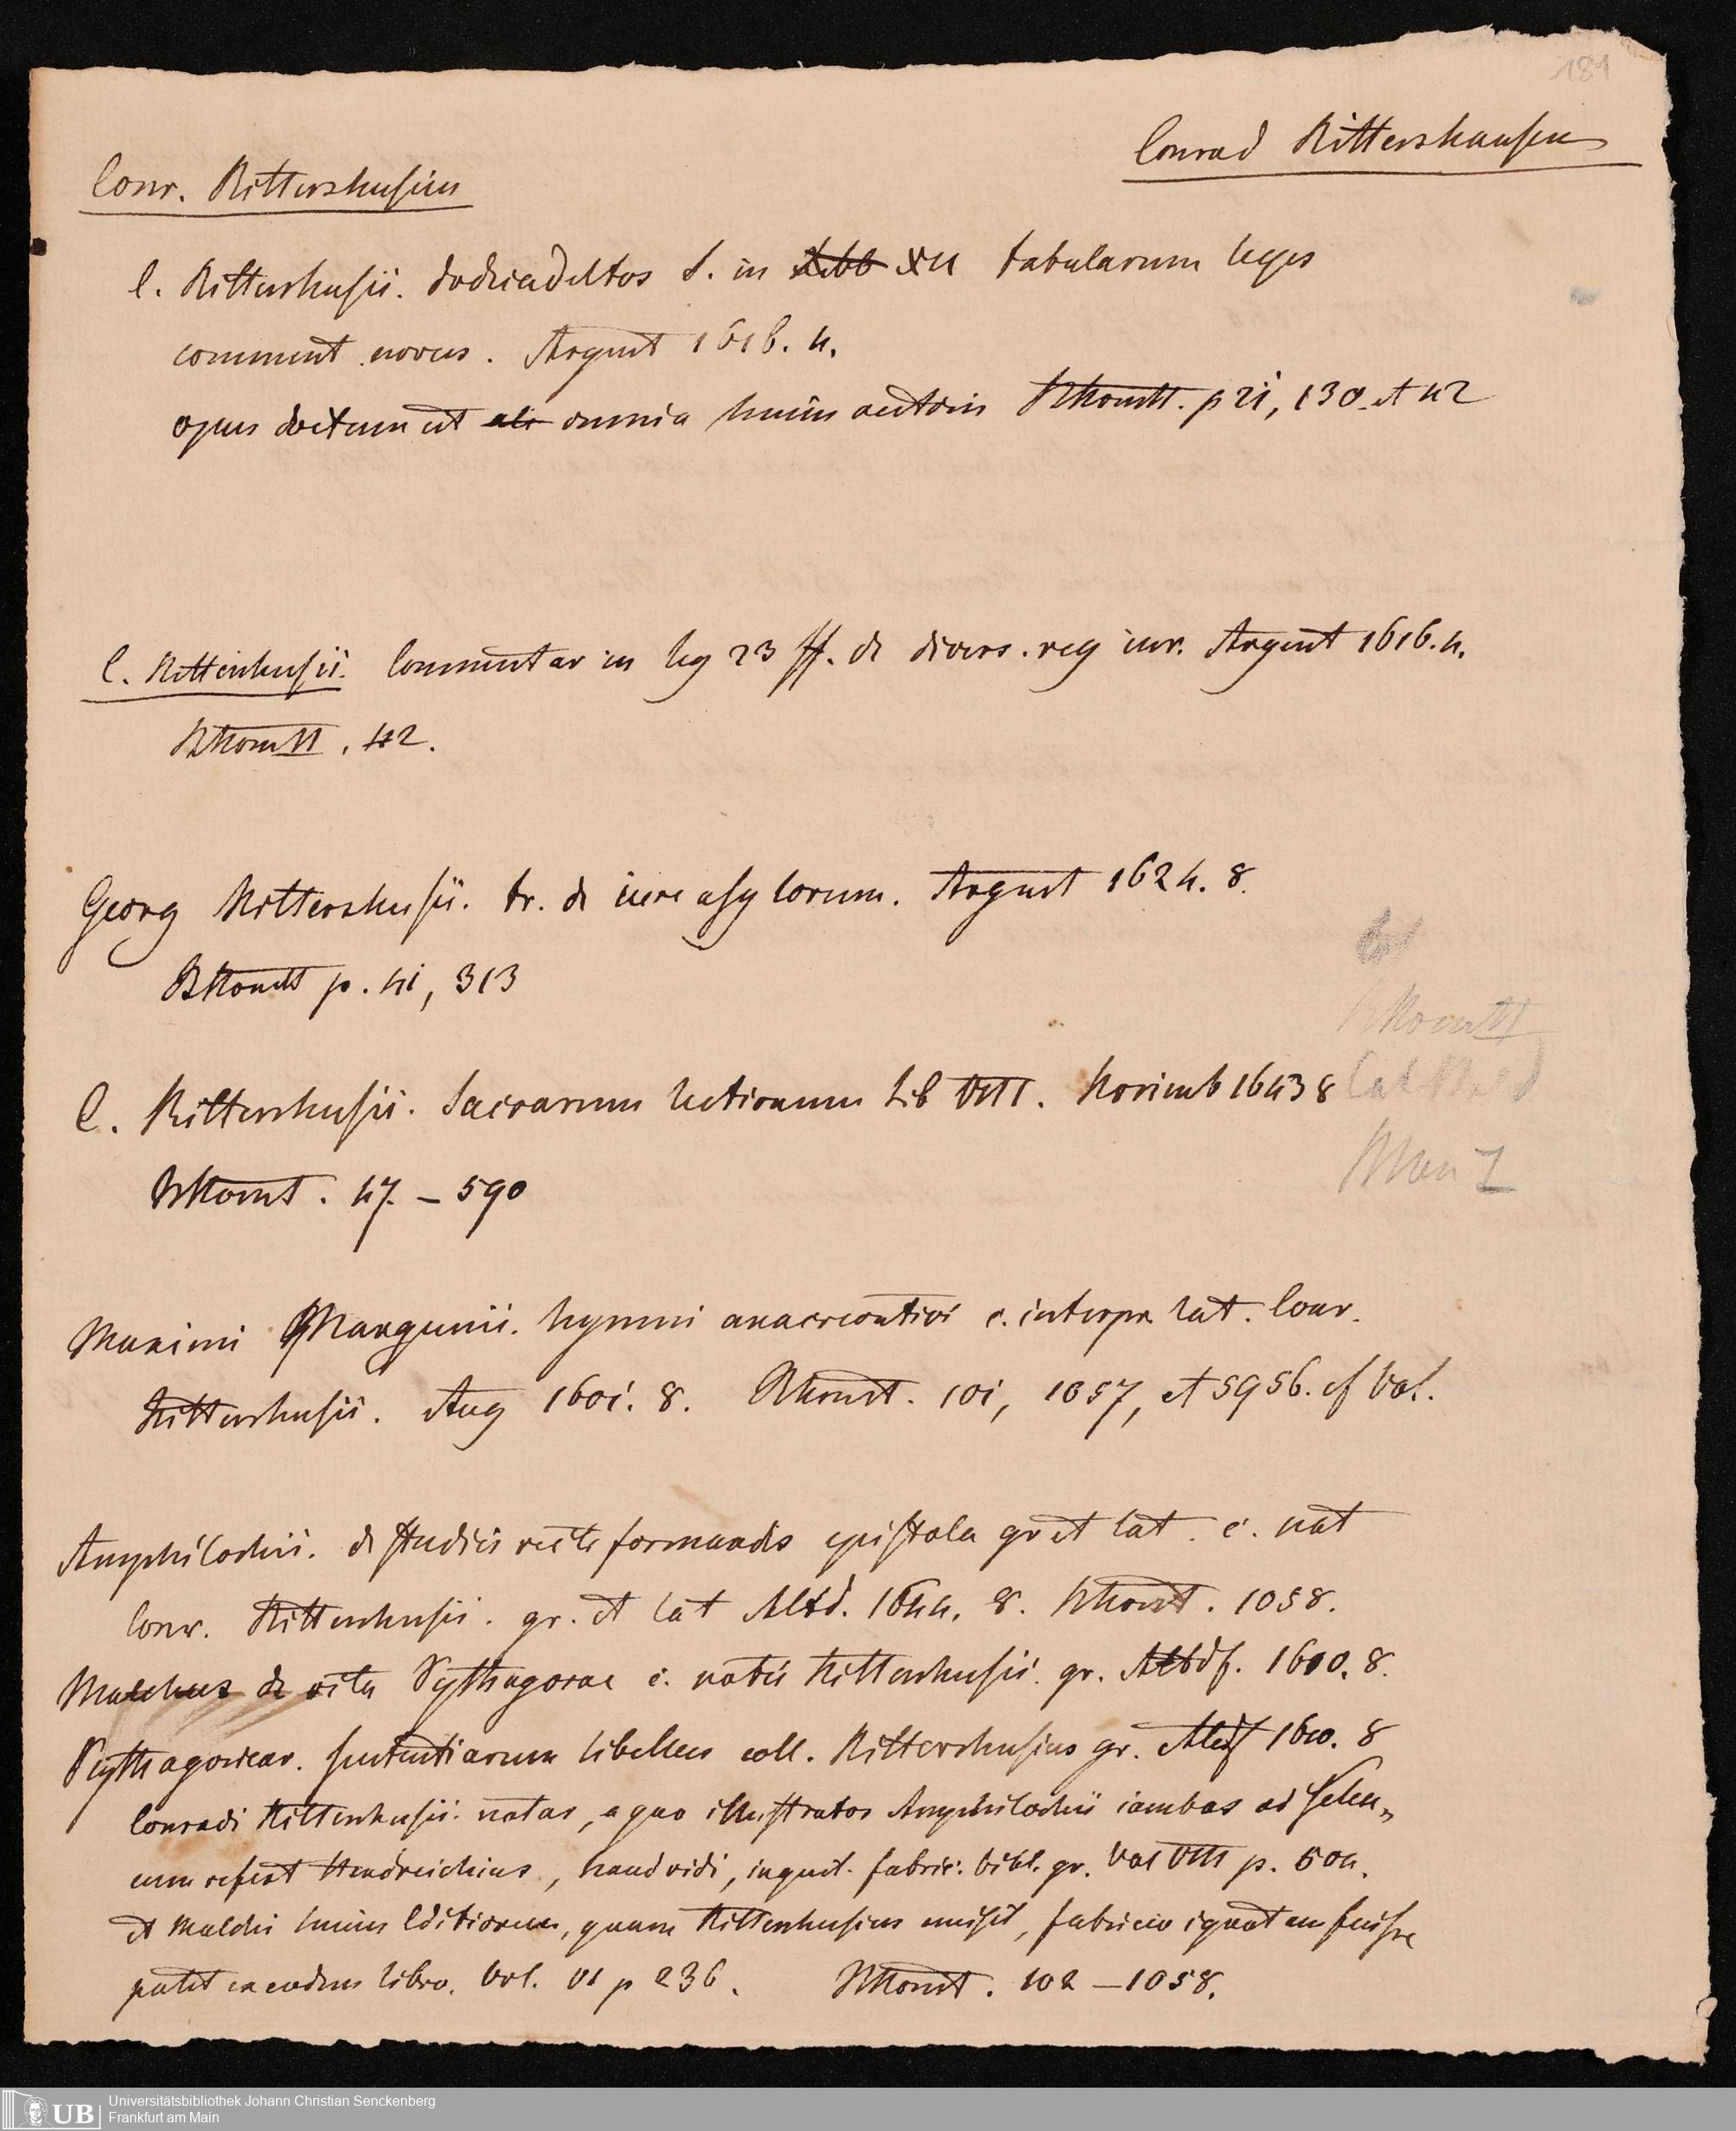 181
Conrad Rittershausen
Conr. Rittershusius
C. Rittershusii. dodecadeltos s. in XII tabularum leges
comment. novus. Argent 1616. 4.
opus doctum ut omnia huius autoris p 21, 130. et 42
C. Rittershusii. Commentar in leg 23 ff. de divers. reg iur. Argent 1616. 4.
42.
Georg Rittershusii. tr. de iure asylorum. Argent 1624. 8.
p. 41, 313
C. Rittershusii. Sacrarum lectionum Lib VIII. Norimb 1643 8
47. – 590
Maximi Margunii. hymni anacreontici c. interpr. lat. Conr.
Rittershusii. Aug 1601. 8. 101, 1057, et 5956. cf Vol.
Amphilochii. de studiis recte formandis epistola gr et lat. c. not
Conr. Rittershusii. gr. et lat Altd. 1644. 8. 1058.
Malchus de vita Pythagorae c. notis Rittershusii. gr. Altdf. 1610. 8.
Pythagorear. sententiarum libellus coll. Rittershusius gr. Altdf 1610. 8
Conradi Rittershusii. notas, a quo illustratos Amphilochii iambos ad Seleu„
cum refert Hendreichius, haud vidi, inquit. fabric. bibl. gr. Vol VIII p. 504.
et Malchi huius Editionem, quam Rittershusius emisit, fabricio ignotam fuisse
patet ex eodem libro. Vol. VI p 236. 102 – 1058.
UB
Universitätsbibliothek Johann Christian Senckenberg
Frankfurt am Main